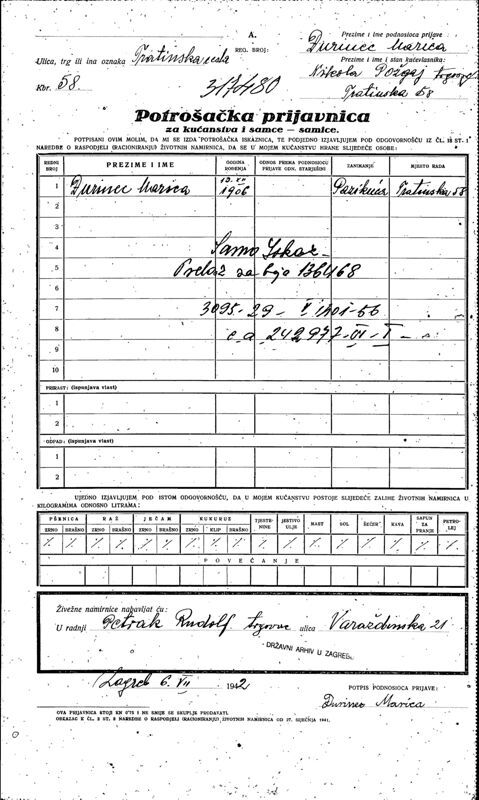 A.
Ulica, trg ili ina oznaka Tratinska cesta
Kbr. 58
REG. BROJ:
Prezime i ime podnosioca prijave
Durinec Marica
Prezime i ime i stan kućevlasnika:
Nikola Požgaj trgovac
Tratinska 58
Potrošačka prijavnica
za kućanstva i samce — samice.
POTPISANI OVIM MOLIM, DA MI SE IZDA POTROŠAČKA ISKAZNICA, TE PODJEDNO IZJAVLJUJEM POD ODGOVORNOŠĆU IZ ČL. 18 ST. 1
NAREDBE O RASPODJELI (RACIONIRANJU) ŽIVOTNIH NAMIRNICA, DA SE U MOJEM KUĆANSTVU HRANE SLIJEDEĆE OSOBE:
REDNI BROJ PREZIME I IME GODINA ROĐENJA ODNOS PREMA PODNOSIOCU PRIJAVE ODN. STARJEŠINI ZANIMANJE MJESTO RADA
1 Durinec Marica 1906 Tratinska 58
2
3
4 Samo Iskaz
5 Prelaz za broj 136468
6
7 3095-29-
8 242977-VI-I-
9
10
PRIRAST: (ispunjava vlast)
1
2
ODPAD: (ispunjava vlast)
1
2
UJEDNO IZJAVLJUJEM POD ISTOM ODGOVORNOŠĆU, DA U MOJEM KUĆANSTVU POSTOJE SLIJEDEĆE ZALIHE ŽIVOTNIH NAMIRNICA U
KILOGRAMIMA ODNOSNO LITRAMA:
PŠENICA RAŽ JEČAM KUKURUZ TJESTENINE JESTIVO ULJE MAST SOL ŠEĆER KAVA SAPUN ZA PRANJE PETROLEJ
ZRNO BRAŠNO ZRNO BRAŠNO ZRNO BRAŠNO ZRNO KLIP BRAŠNO
% % % % % % % % % % % % % % % % %
POVEĆANJE
Živežne namirnice nabavljat ću:
U radnji Petrak Rudolf trgovac ulica Varaždinska 21
DRŽAVNI ARHIV U ZAGREBU
Zagreb 6. VII 1942
POTPIS PODNOSIOCA PRIJAVE:
Durinec Marica
OVA PRIJAVNICA STOJI KN 0'75 I NE SMIJE SE SKUPLJE PRODAVATI.
OBRAZAC K ČL. 2 ST. 2 NAREDBE O RASPODJELI (RACIONIRANJU) ŽIVOTNIH NAMIRNICA OD 27. SIJEČNJA 1941.